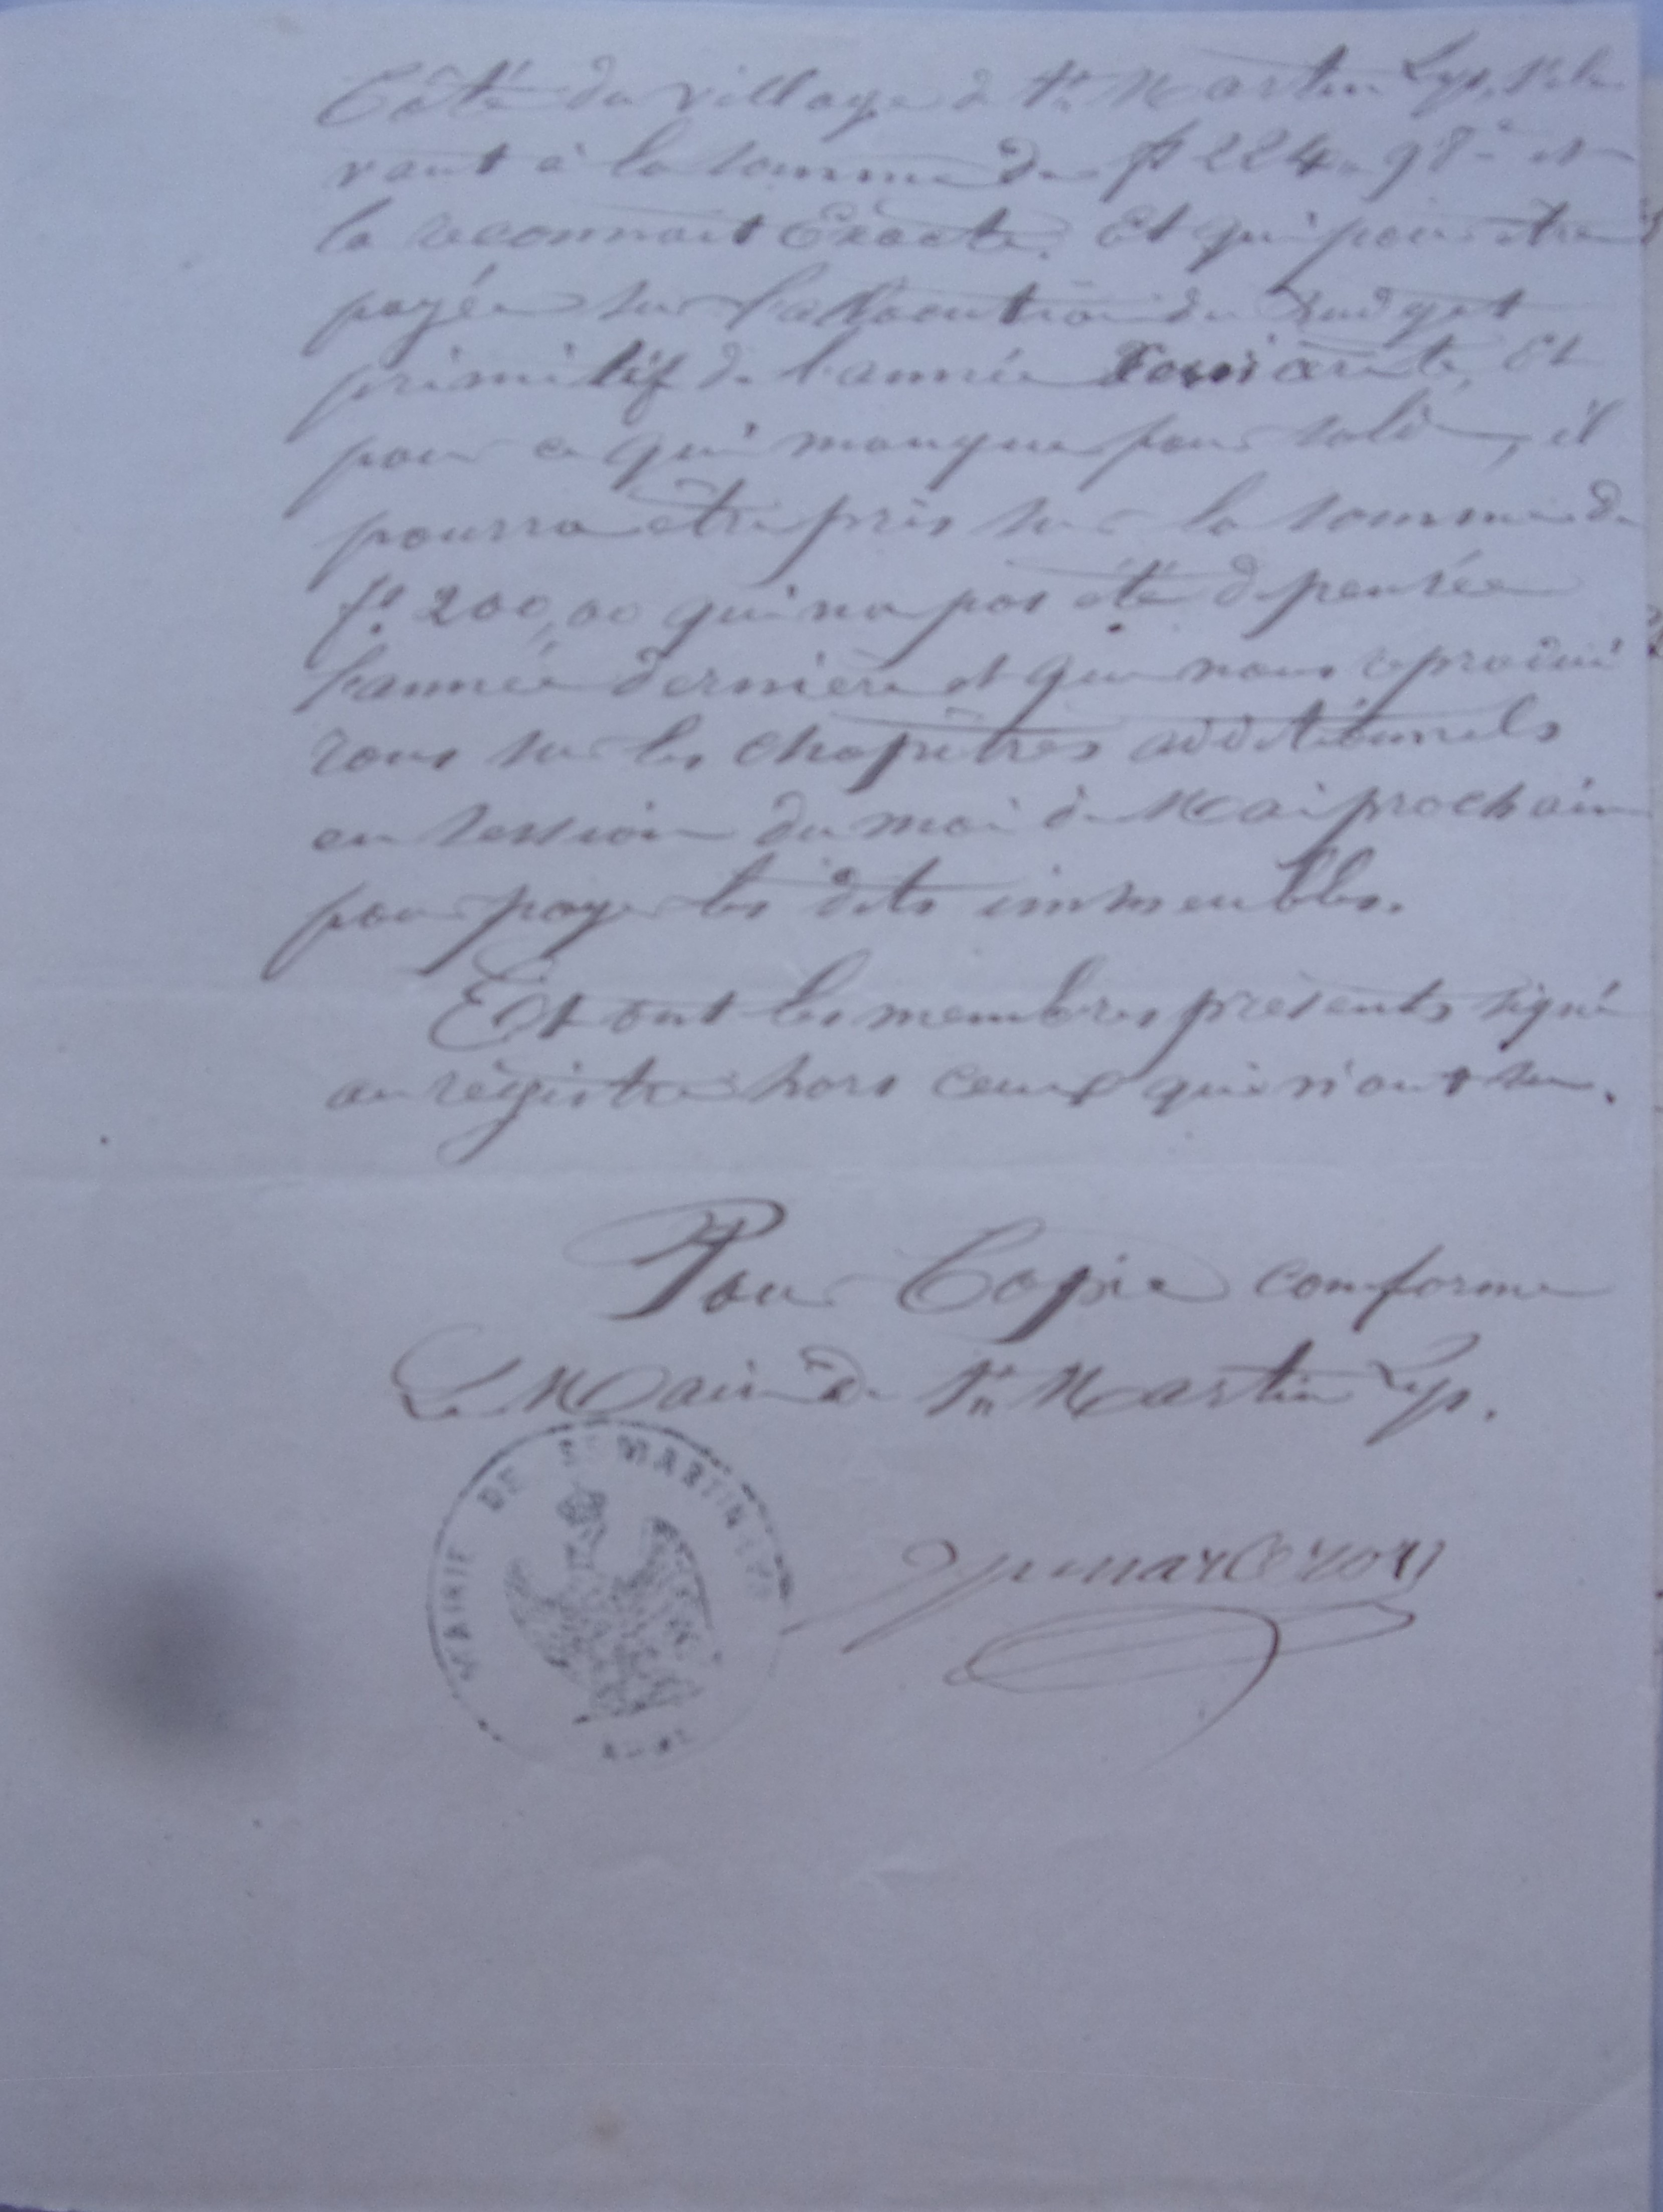 Côté du village de St Martin Lys, s'éle
vant à la somme de f 224,98c et
la reconnait Exacte. Et qui pour être
payée sur l'allocution du Budget
primitif de l'année Et
pour ce qui manque pour solde, il
pourra être pris sur la somme de
fs 200,00 qui na pas été dépensée
l'année dernière et que nous reprodui
rons sur les chapitres additionnels
en session du moi de Mai prochain
pour payer les dits immeubles.
Et ont les membres présents signé
au registre hors ceux qui n'ont su.
Pour Copie conforme
Le Maire de St Martin Lys.
MAIRIE DE ST MARTIN LYS